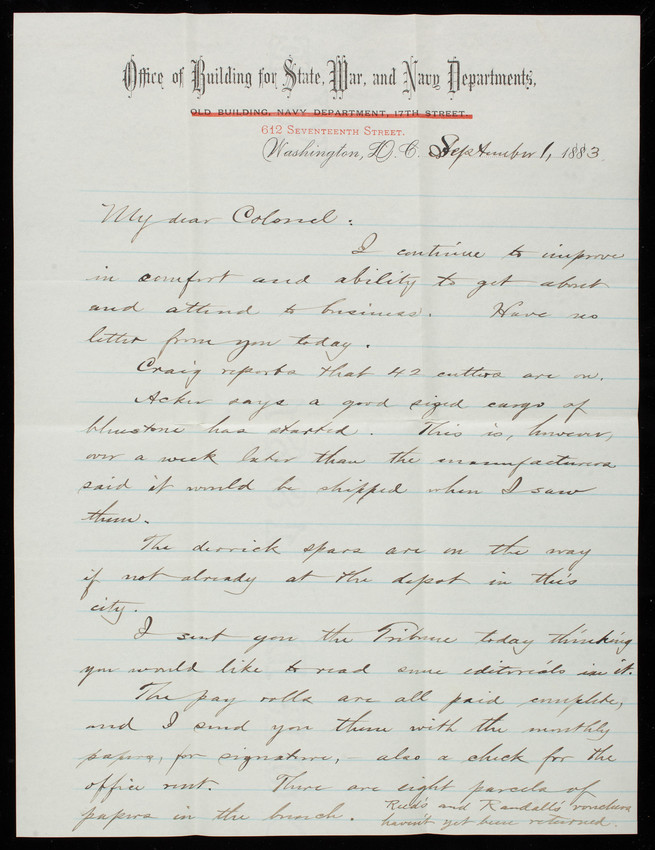 Office of Building for State, War, and Navy Departments,
OLD BUILDING, NAVY DEPARTMENT, 17TH STREET.
612 SEVENTEENTH STREET.
Washington, D. C. September 1, 1883.
My dear Colonel:
I continue to improve
in comfort and ability to get about
and attend to business. Have no
letter from you today.
Craig reports that 42 cutters are on.
Acker says a good sized cargo of
bluestone has started. This is, however,
over a week later than the manufacturers
said it would be shipped when I saw
them.
The derrick spars are on the way
if not already at the depot in this
city.
I sent you the Tribune today thinking
you would like to read some editorials in it.
The pay rolls are all paid complete,
and I send you them with the monthly
papers, for signature, - also a check for the
office rent. There are eight parcels of
papers in the bunch. Reed's and Randall's vouchers
haven't yet been returned.